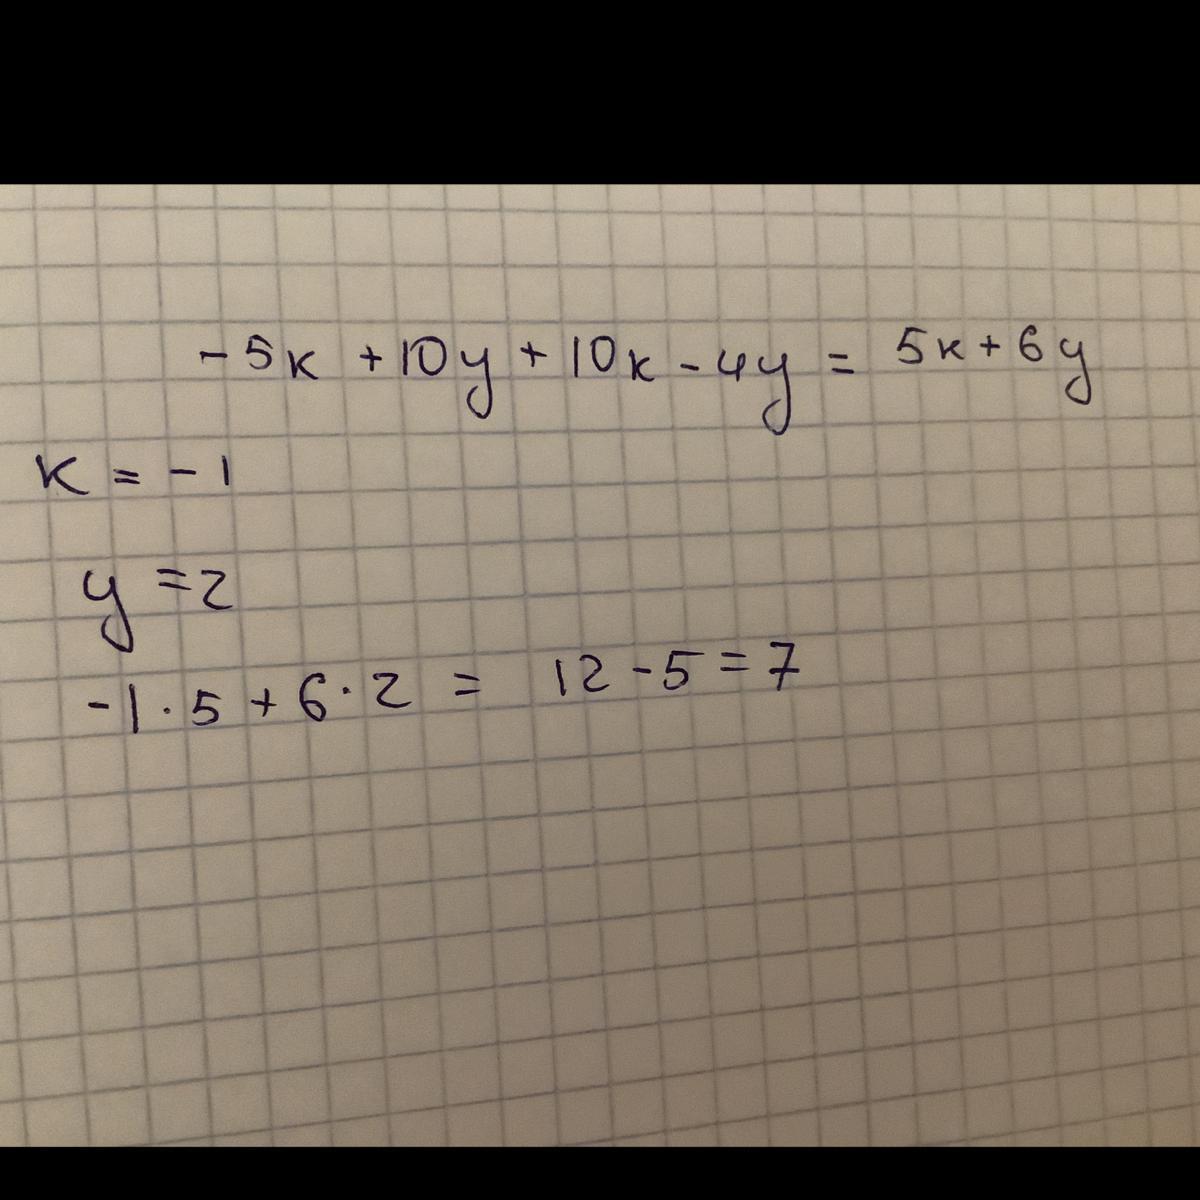 -5к +10y + 10к - 4y = 5к + 6y
к = -1
y = 2
-1 · 5 + 6 · 2 = 12 - 5 = 7